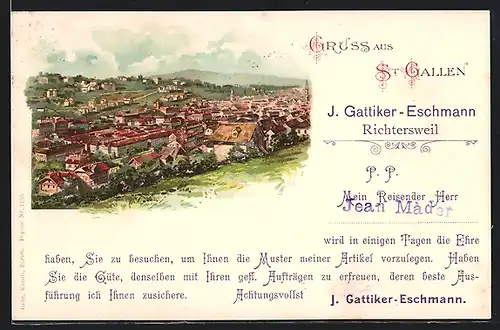 Gruss aus
St Gallen
J. Gattiker-Eschmann
Richtersweil
P. P.
Mein Reisender Herr
Jean Mäder
wird in einigen Tagen die Ehre
haben, Sie zu besuchen, um Ihnen die Muster meiner Artikel vorzulegen. Haben
Sie die Güte, denselben mit Ihren gefl. Aufträgen zu erfreuen, deren beste Aus-
führung ich Ihnen zusichere. Achtungsvollst
J. Gattiker-Eschmann.
Künzli, Zürich.